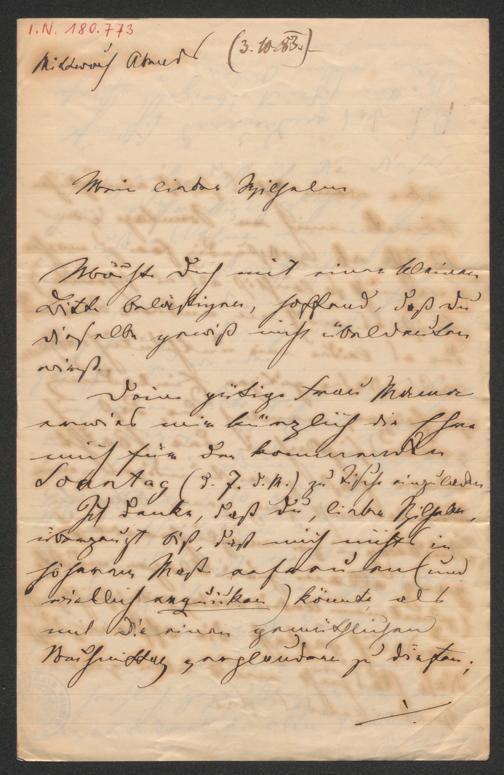 I.N. 180.773
Mittwoch Abends (3.10.83.)
Mein lieber Wilhelm
Möchte Dich mit einer kleinen
Bitte belästigen, hoffend, daß Du
dieselbe gewiß nicht übeldeuten
wirst.
Deine gütige Frau Mama
erwies mir kürzlich die Ehre
mich für den kommenden
Sonntag (d. 7. d. M.) zu Tische einzuladen
Ich denke, daß Du, lieber Wilhelm,
überzeugt bist, daß mich nichts in
höherem Maße erfreuen (und
wirklich erquicken) könnte, als
mit Dir einen gemüthlichen
Nachmittag verplaudern zu dürfen;